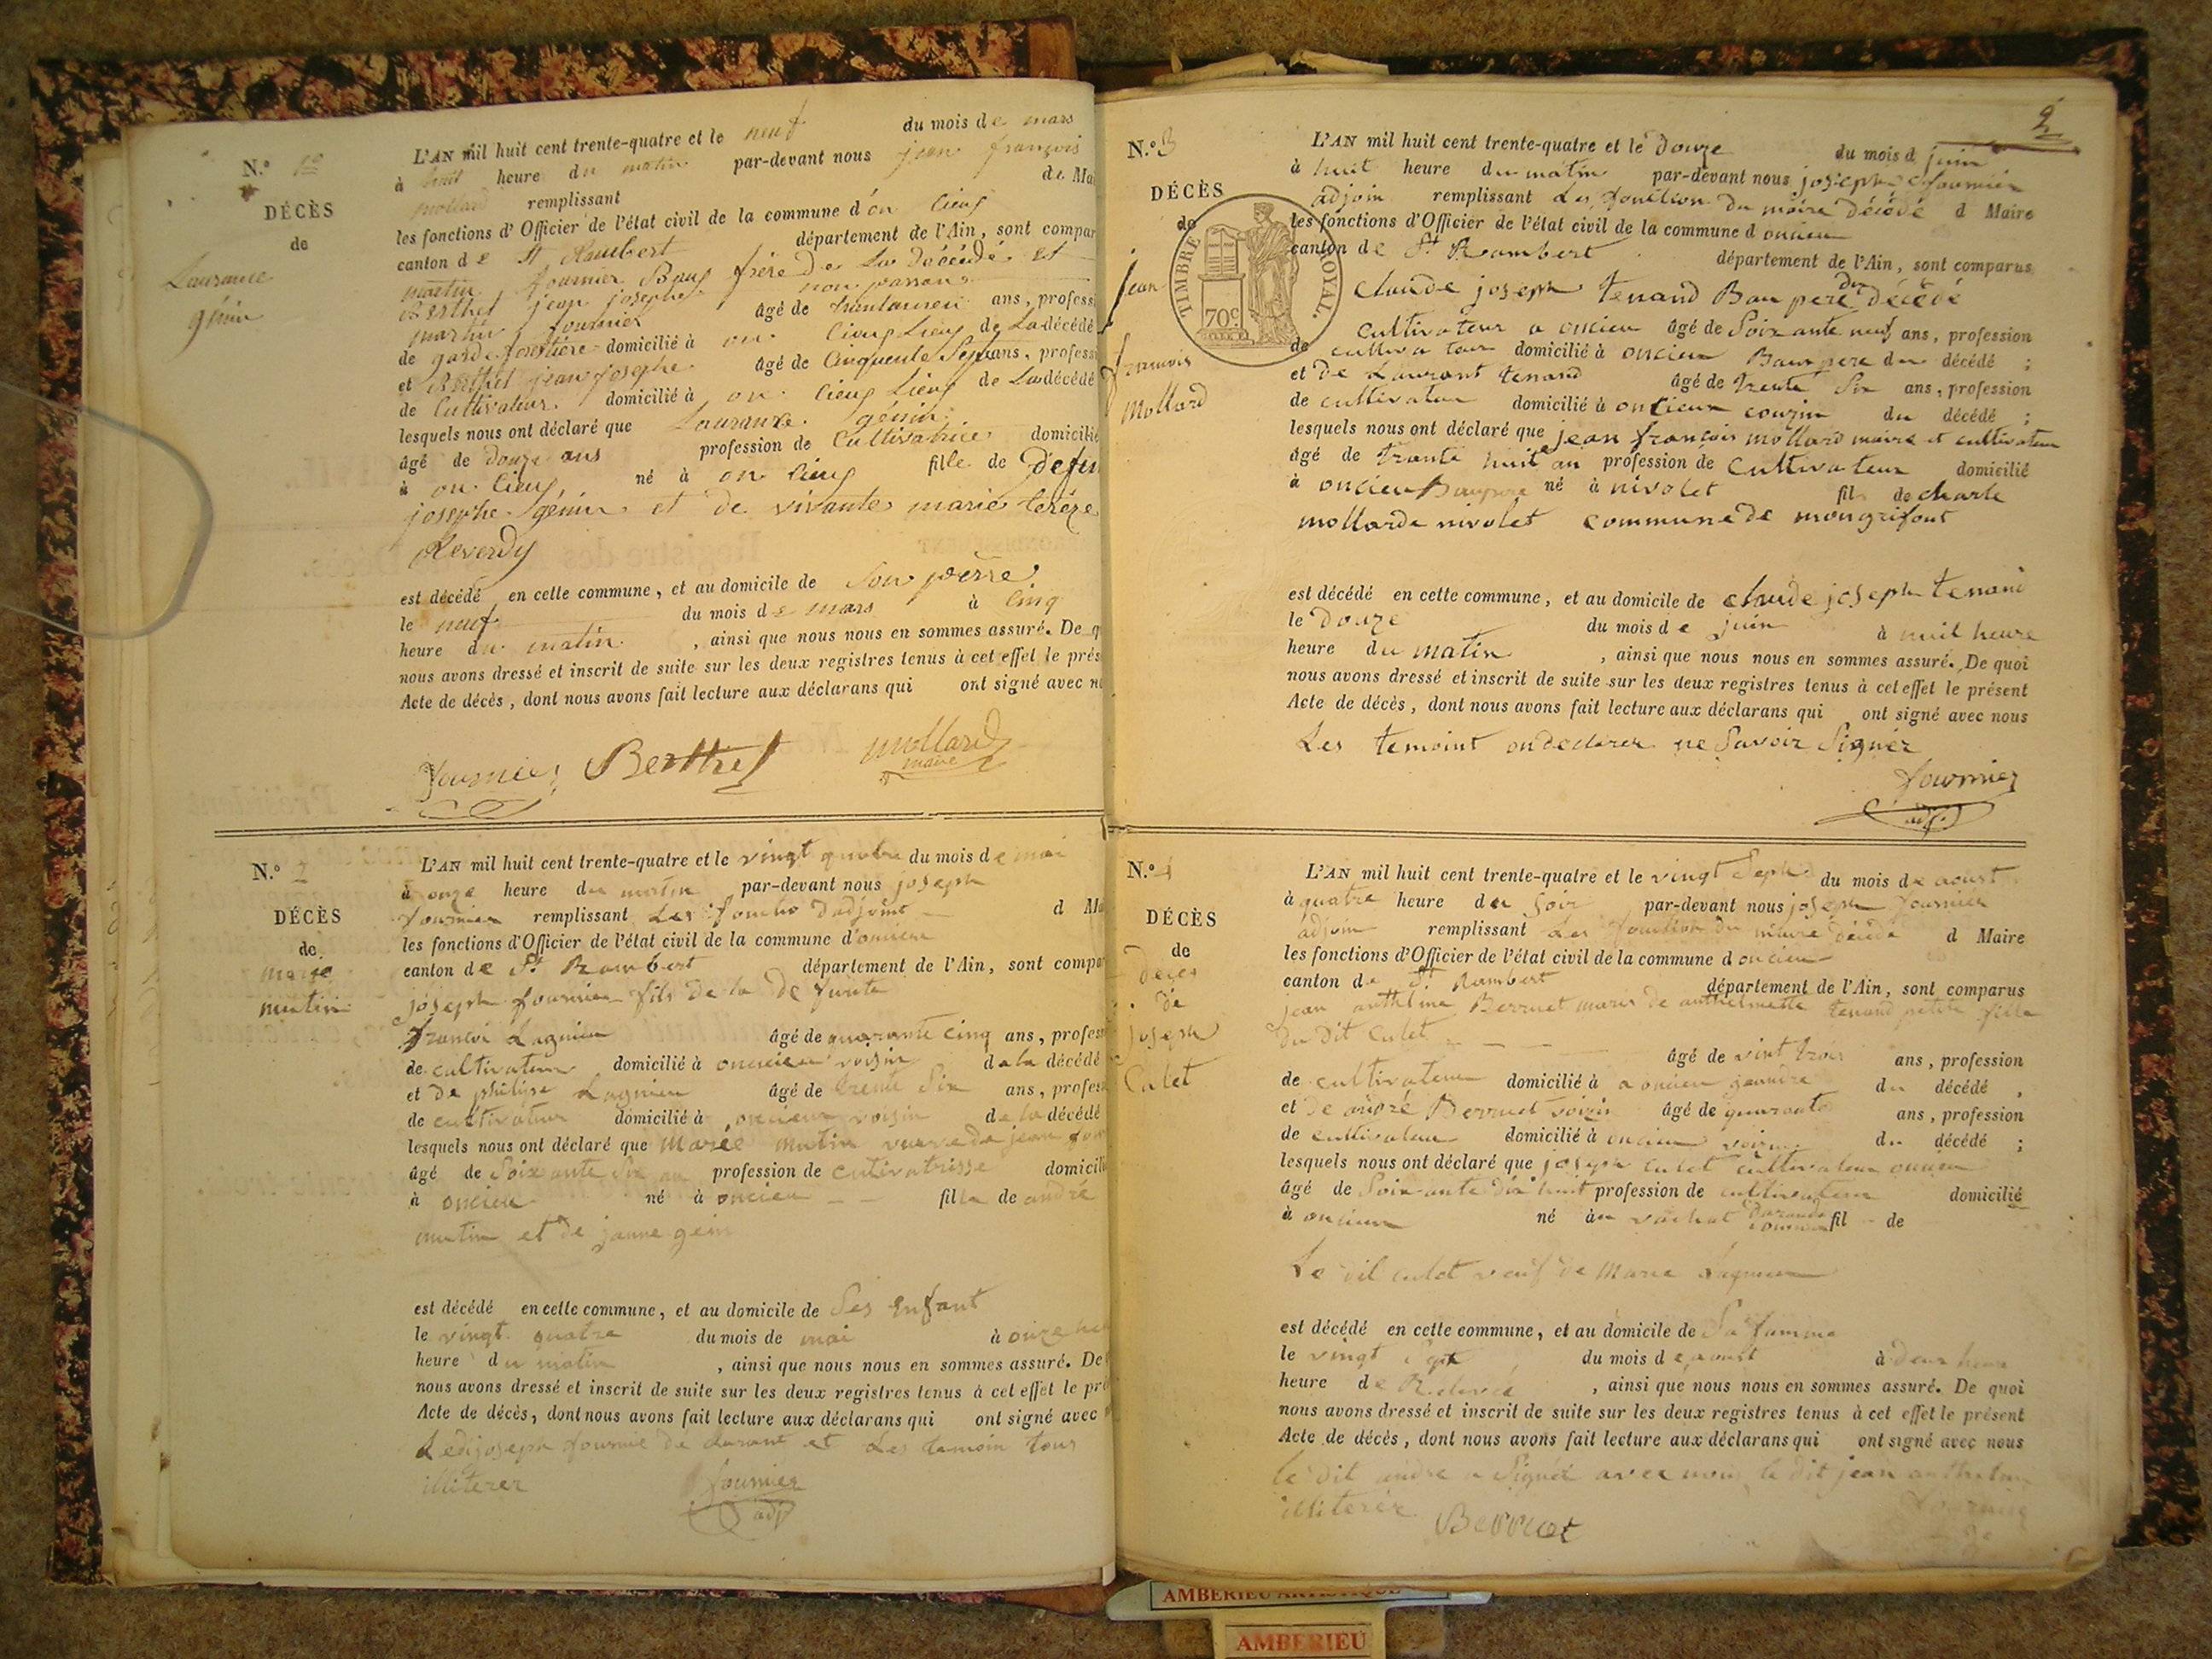 N.º 1º
DÉCÈS
de
Laurance
génin
L'AN mil huit cent trente-quatre et le neuf du mois de mars
à huit heure du matin par-devant nous jean françois
mollard remplissant de Mai
les fonctions d'Officier de l'état civil de la commune d'on cieux
canton de St Rambert département de l'Ain, sont compar
martin fournier Baux frére de La décédé et
Berthet jean josephe non parrans
martin fournier âgé de ans, profess
de garde forestière domicilié à on cieux de La décédé
et Berthet jean josephe âgé de Cinquente Sept ans, professi
de Cultivateur domicilié à on cieux de La décédé
lesquels nous ont déclaré que Laurance génin
âgé de douze ans profession de Cultivatrice domicilié
à on cieux né à on cieux fille de defu
josephe génin et de vivante marie terèze
Reverdy
est décédé en cette commune, et au domicile de Son père
le neuf du mois de mars à Cinq
heure du matin, ainsi que nous nous en sommes assuré. De q
nous avons dressé et inscrit de suite sur les deux registres tenus à cet effet le prés
Acte de décès, dont nous avons fait lecture aux déclarans qui ont signé avec no
fournier Berthet mollard
maire
N.º 2
DÉCÈS
de
marie
mutin
L'AN mil huit cent trente-quatre et le vingt quatre du mois de mai
à onze heure du matin par-devant nous joseph
fournier remplissant Les d'adjoint d Mai
les fonctions d'Officier de l'état civil de la commune d'oncieu
canton de St Rambert département de l'Ain, sont compar
joseph fournier fils de la defunte
francoi Lagnieu âgé de quarante cinq ans, profess
de cultivateur domicilié à oncieu voisin de la décédé
et de philipe Lagnieu âgé de trente Six ans, profess
de cultivateur domicilié à oncieu voisin de la décédé
lesquels nous ont déclaré que Marie mutin veuve de jean four
âgé de Soixante Six an profession de cutivatrisse domicilié
à oncieu né à oncieu fille de andré
mutin et de janne
est décédé en cette commune, et au domicile de Ses enfant
le vingt quatre du mois de mai à onze heu
heure du matin, ainsi que nous nous en sommes assuré. De
nous avons dressé et inscrit de suite sur les deux registres tenus à cet effet le pré
Acte de décès, dont nous avons fait lecture aux déclarans qui ont signé avec
Ledi joseph fournié de clarant et Les temoin tous
illiterer fournier
adj
2
N.º 3
DÉCÈS
de
jean
françois
Mollard
TIMBRE ROYAL.
70c
L'AN mil huit cent trente-quatre et le douze du mois d juin
à huit heure du matin par-devant nous joseph fournier
adjoin remplissant Les fonction du maire décédé d Maire
les fonctions d'Officier de l'état civil de la commune d oncieu
canton de St Rambert département de l'Ain, sont comparus
Claude joseph tenand Bau pere du décédé
Cultivateur a oncieu âgé de Soixante neuf ans, profession
de cultivateur domicilié à oncieu Beaupere du décédé ;
et de Laurant tenand âgé de trente Six ans, profession
de cultivateur domicilié à oncieux couzin du décédé ;
lesquels nous ont déclaré que jean françois mollard maire et cultivateur
âgé de trante huit an profession de Cultivateur domicilié
à oncieu né à nivolet fils de charle
mollard a nivolet commune de mongrifont
est décédé en cette commune, et au domicile de claude joseph tenand
le Douze du mois de juin à huit heure
heure du matin, ainsi que nous nous en sommes assuré. De quoi
nous avons dressé et inscrit de suite sur les deux registres tenus à cet effet le présent
Acte de décès, dont nous avons fait lecture aux déclarans qui ont signé avec nous
Les temoint on declarer ne Savoir Signér
fournier
adj.
N.º 4
DÉCÈS
de
Deces
de
joseph
Culet
L'AN mil huit cent trente-quatre et le vingt Sept du mois de aoust
à quatre heure du Soir par-devant nous joseph fournier
adjoin remplissant Les fonction du maire décédé d Maire
les fonctions d'Officier de l'état civil de la commune d oncieu
canton de St Rambert département de l'Ain, sont comparus
jean anthelme Berruet maris de anthelmette tenand petite fille
du dit Culet âgé de vint trois ans, profession
de cultivateur domicilié à a oncieu geandre du décédé
et de andré Berruet voisin âgé de quarante ans, profession
de cultivateur domicilié à oncieu voisin du décédé ;
lesquels nous ont déclaré que joseph culet cultivateur oncieu
âgé de Soixante dix huit profession de cultivateur domicilié
à oncieu né à fil de
Le dit culet veuf de Marie Lagnieu
est décédé en cette commune, et au domicile de Sa famme
le vingt Sept du mois de aoust à deux heure
heure de, ainsi que nous nous en sommes assuré. De quoi
nous avons dressé et inscrit de suite sur les deux registres tenus à cet effet le présent
Acte de décès, dont nous avons fait lecture aux déclarans qui ont signé avec nous
le dit andre a Signer avec nous le dit jean anthelme
illiterer Berruet fournier
AMBERIEU ARTISTIQUE
AMBERIEU